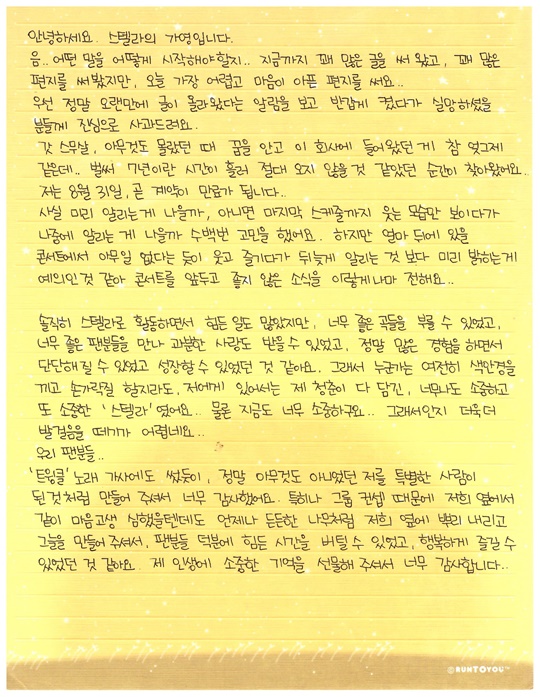 안녕하세요. 스텔라의 가영입니다.
음.. 어떤 말을 어떻게 시작해야할지.. 지금까지 꽤 많은 글을 써 왔고, 꽤 많은
편지를 써 봤지만, 오늘 가장 어렵고 마음이 아픈 편지를 써요..
우선 정말 오랜만에 글이 올라왔다는 알람을 보고 반갑게 켰다가 실망하셨을
분들께 진심으로 사과드려요.
갓 스무살, 아무것도 몰랐던 때 꿈을 안고 이 회사에 들어왔던 게 참 엊그제
같은데.. 벌써 7년이란 시간이 흘러 절대 오지 않을 것 같았던 순간이 찾아왔어요..
저는 8월 31일, 곧 계약이 만료가 됩니다..
사실 미리 알리는게 나을까, 아니면 마지막 스케줄까지 웃는 모습만 보이다가
나중에 알리는 게 나을까 수백번 고민을 했어요. 하지만 얼마 뒤에 있을
콘서트에서 아무일 없다는 듯이 웃고 즐기다가 뒤늦게 알리는 것 보다 미리 밝히는게
예의인것 같아 콘서트를 앞두고 좋지 않은 소식을 이렇게나마 전해요..
솔직히 스텔라로 활동하면서 힘든 일도 많았지만, 너무 좋은 곡들을 부를 수 있었고,
너무 좋은 팬분들을 만나 과분한 사랑도 받을 수 있었고, 정말 많은 경험을 하면서
단단해질 수 있었고 성장할 수 있었던 것 같아요. 그래서 누군가는 여전히 색안경을
끼고 손가락질 할지라도, 저에게 있어서는 제 청춘이 다 담긴, 너무나도 소중하고
또 소중한 '스텔라'였어요.. 물론 지금도 너무 소중하구요.. 그래서인지 더욱더
발걸음을 떼기가 어렵네요..
우리 팬분들..
'트윙클' 노래 가사에도 썼듯이, 정말 아무것도 아니었던 저를 특별한 사람이
된것처럼 만들어 주셔서 너무 감사했어요. 특히나 그룹 컨셉 때문에 저희 옆에서
같이 마음고생 심했을텐데도 언제나 든든한 나무처럼 저희 옆에 뿌리 내리고
그늘을 만들어주셔서, 팬분들 덕분에 힘든 시간을 버틸 수 있었고, 행복하게 즐길 수
있었던 것 같아요. 제 인생에 소중한 기억을 선물해 주셔서 너무 감사합니다..
©RUNTOYOU™